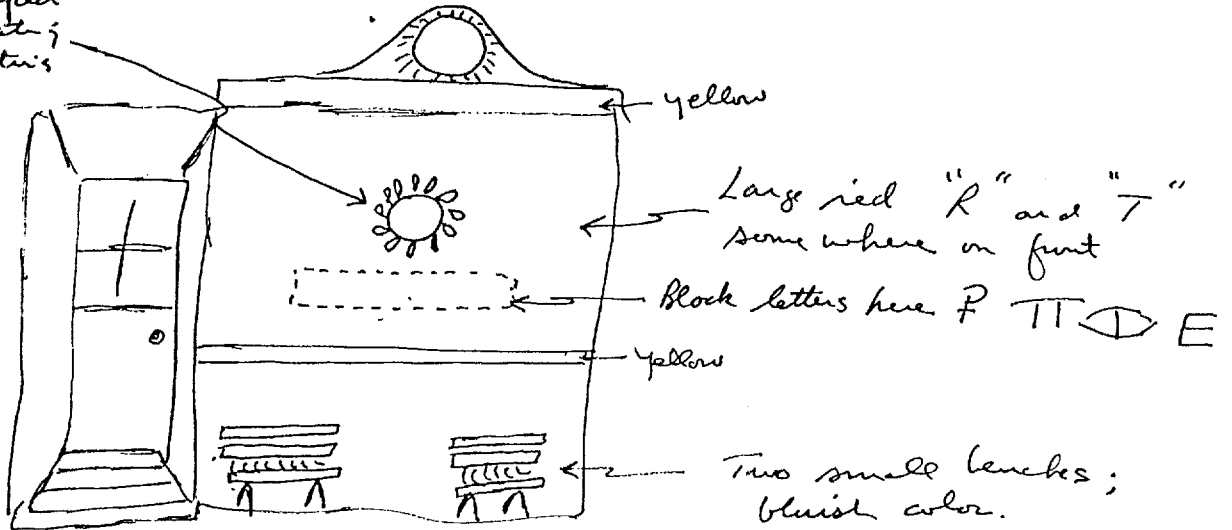 yellow
Large red "R" and "T"
somewhere on front
Block letters here P TT E
yellow
Two small benches;
bluish color.